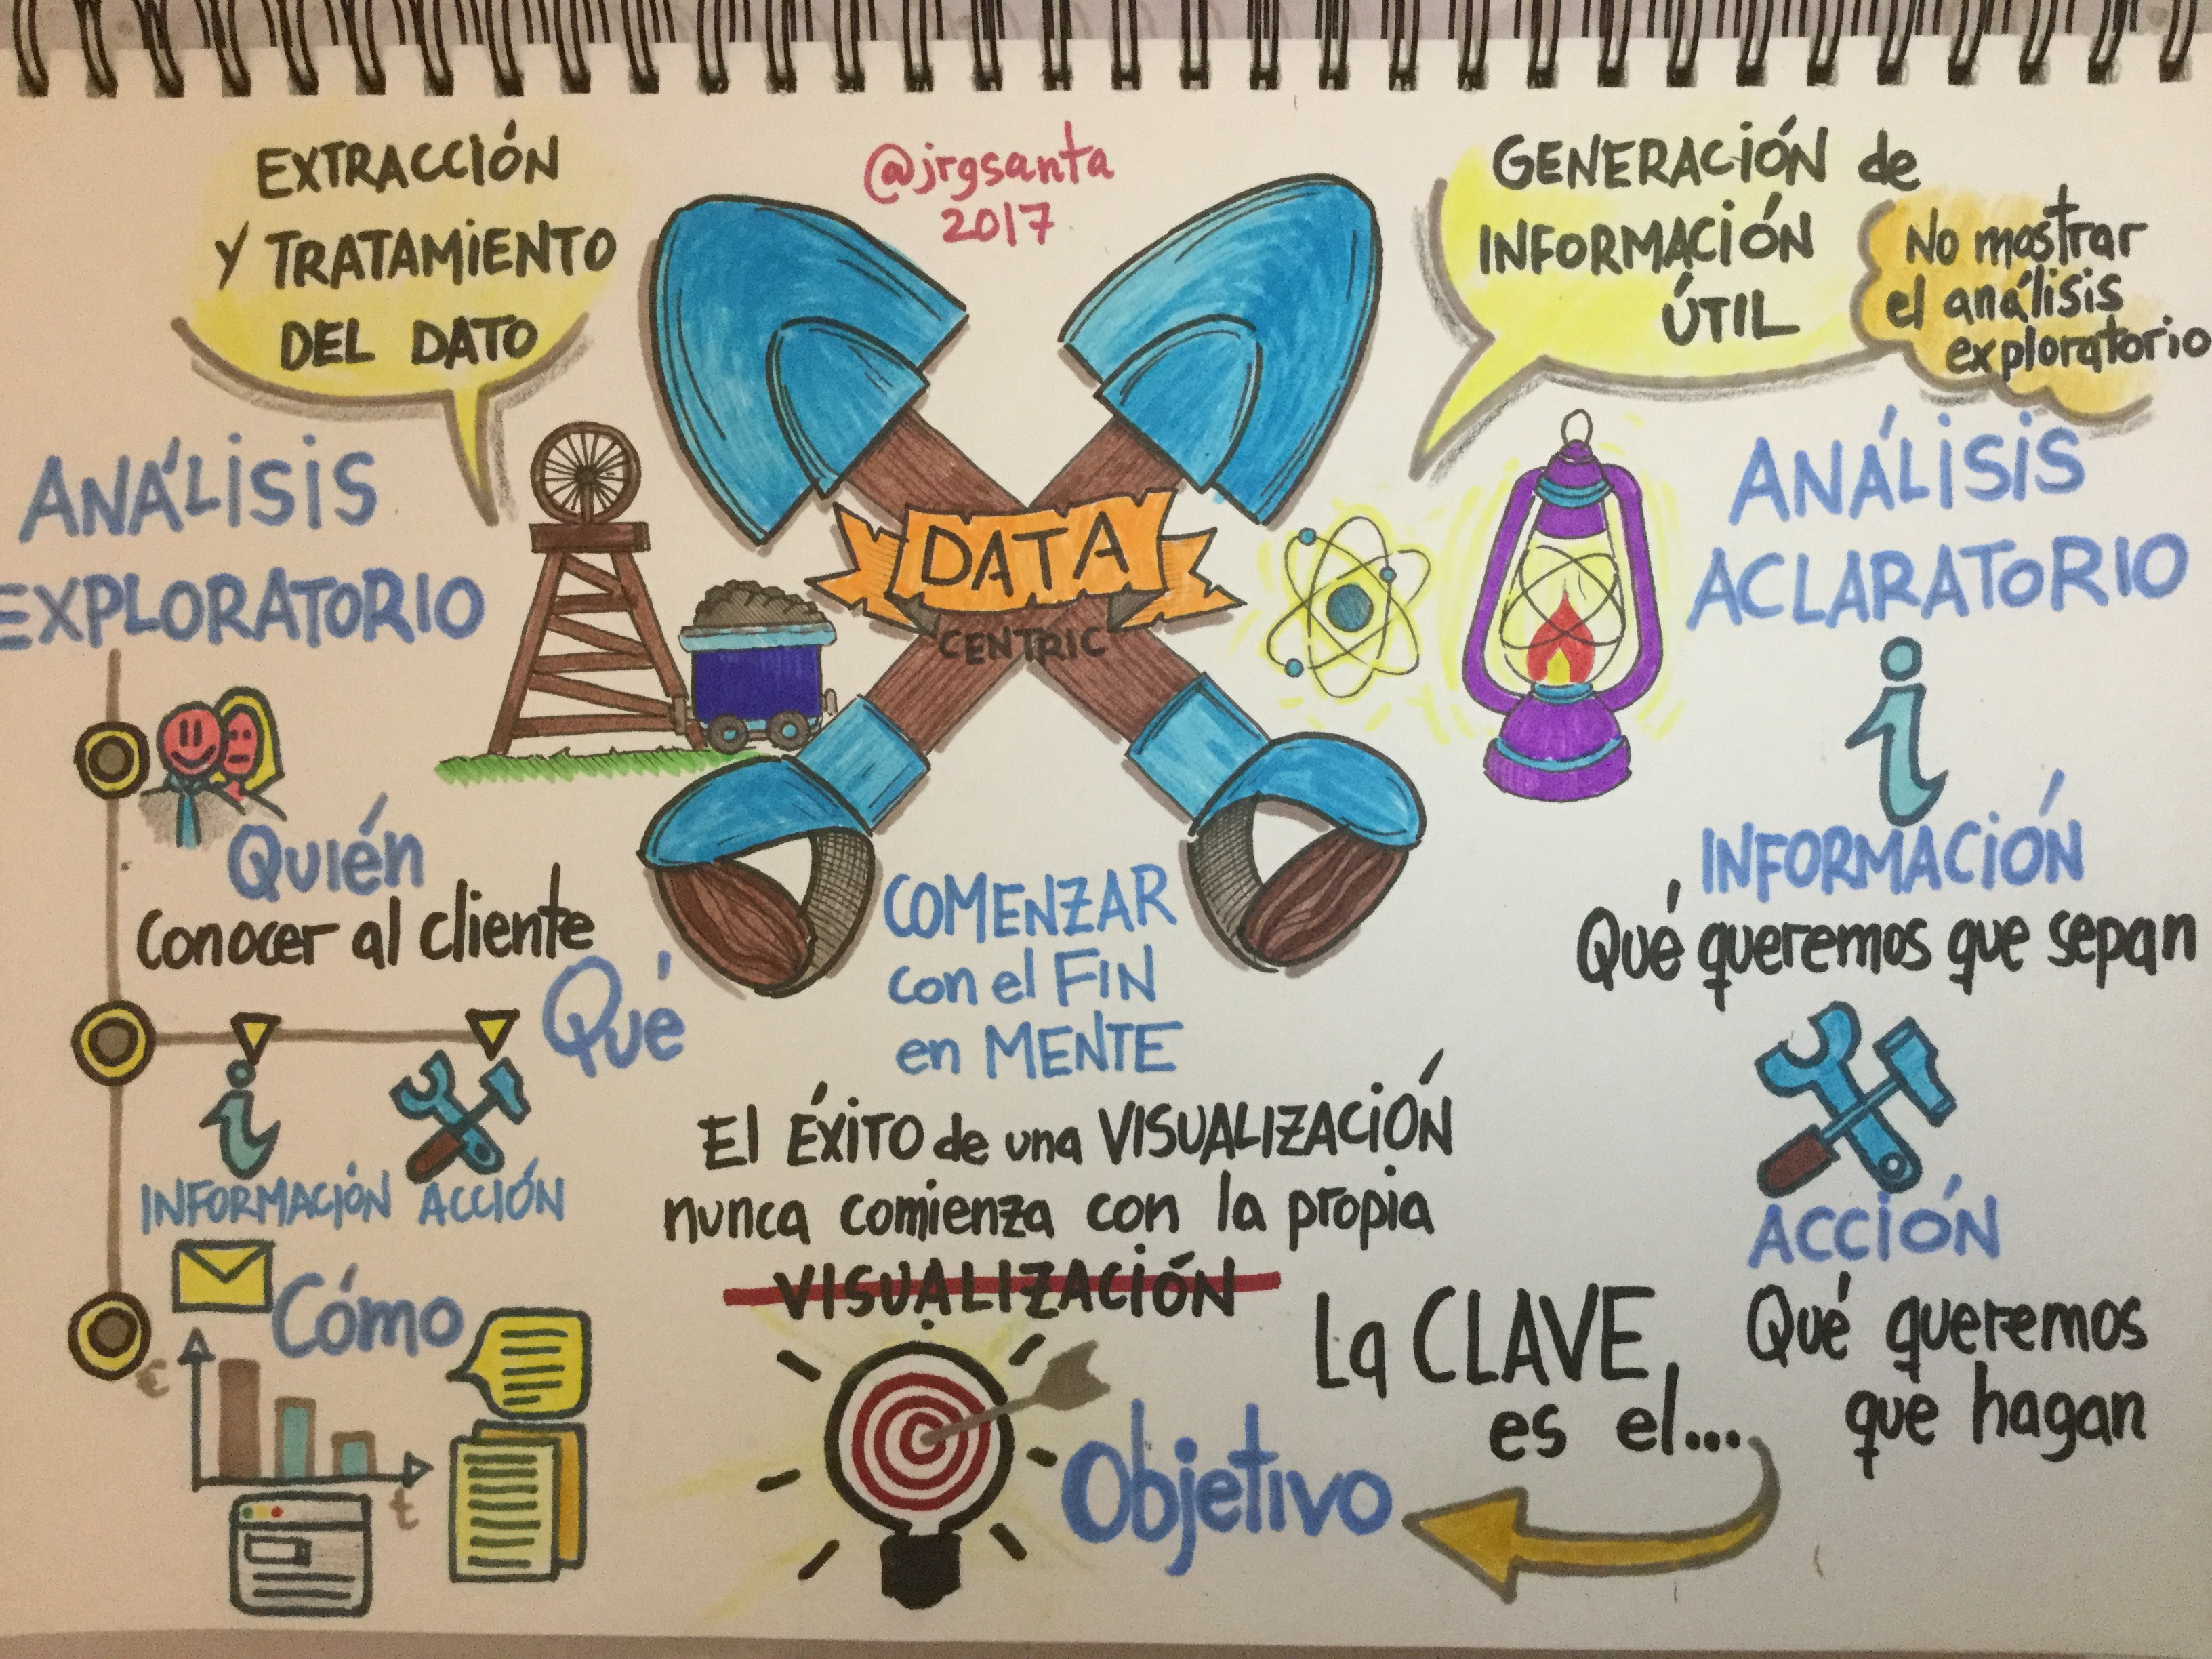 EXTRACCIÓN
Y TRATAMIENTO
DEL DATO
@jrgsanta
2017
GENERACIÓN de
INFORMACIÓN
ÚTIL
No mostrar
el análisis
exploratorio
ANÁLISIS
EXPLORATORIO
DATA
CENTRIC
ANÁLISIS
ACLARATORIO
Quién
Conocer al cliente
Qué
INFORMACIÓN
ACCIÓN
Cómo
€
t
COMENZAR
con el FIN
en MENTE
El ÉXITO de una VISUALIZACIÓN
nunca comienza con la propia
VISUALIZACIÓN
i
INFORMACIÓN
Qué queremos que sepan
ACCIÓN
Qué queremos
que hagan
La CLAVE
es el...
Objetivo